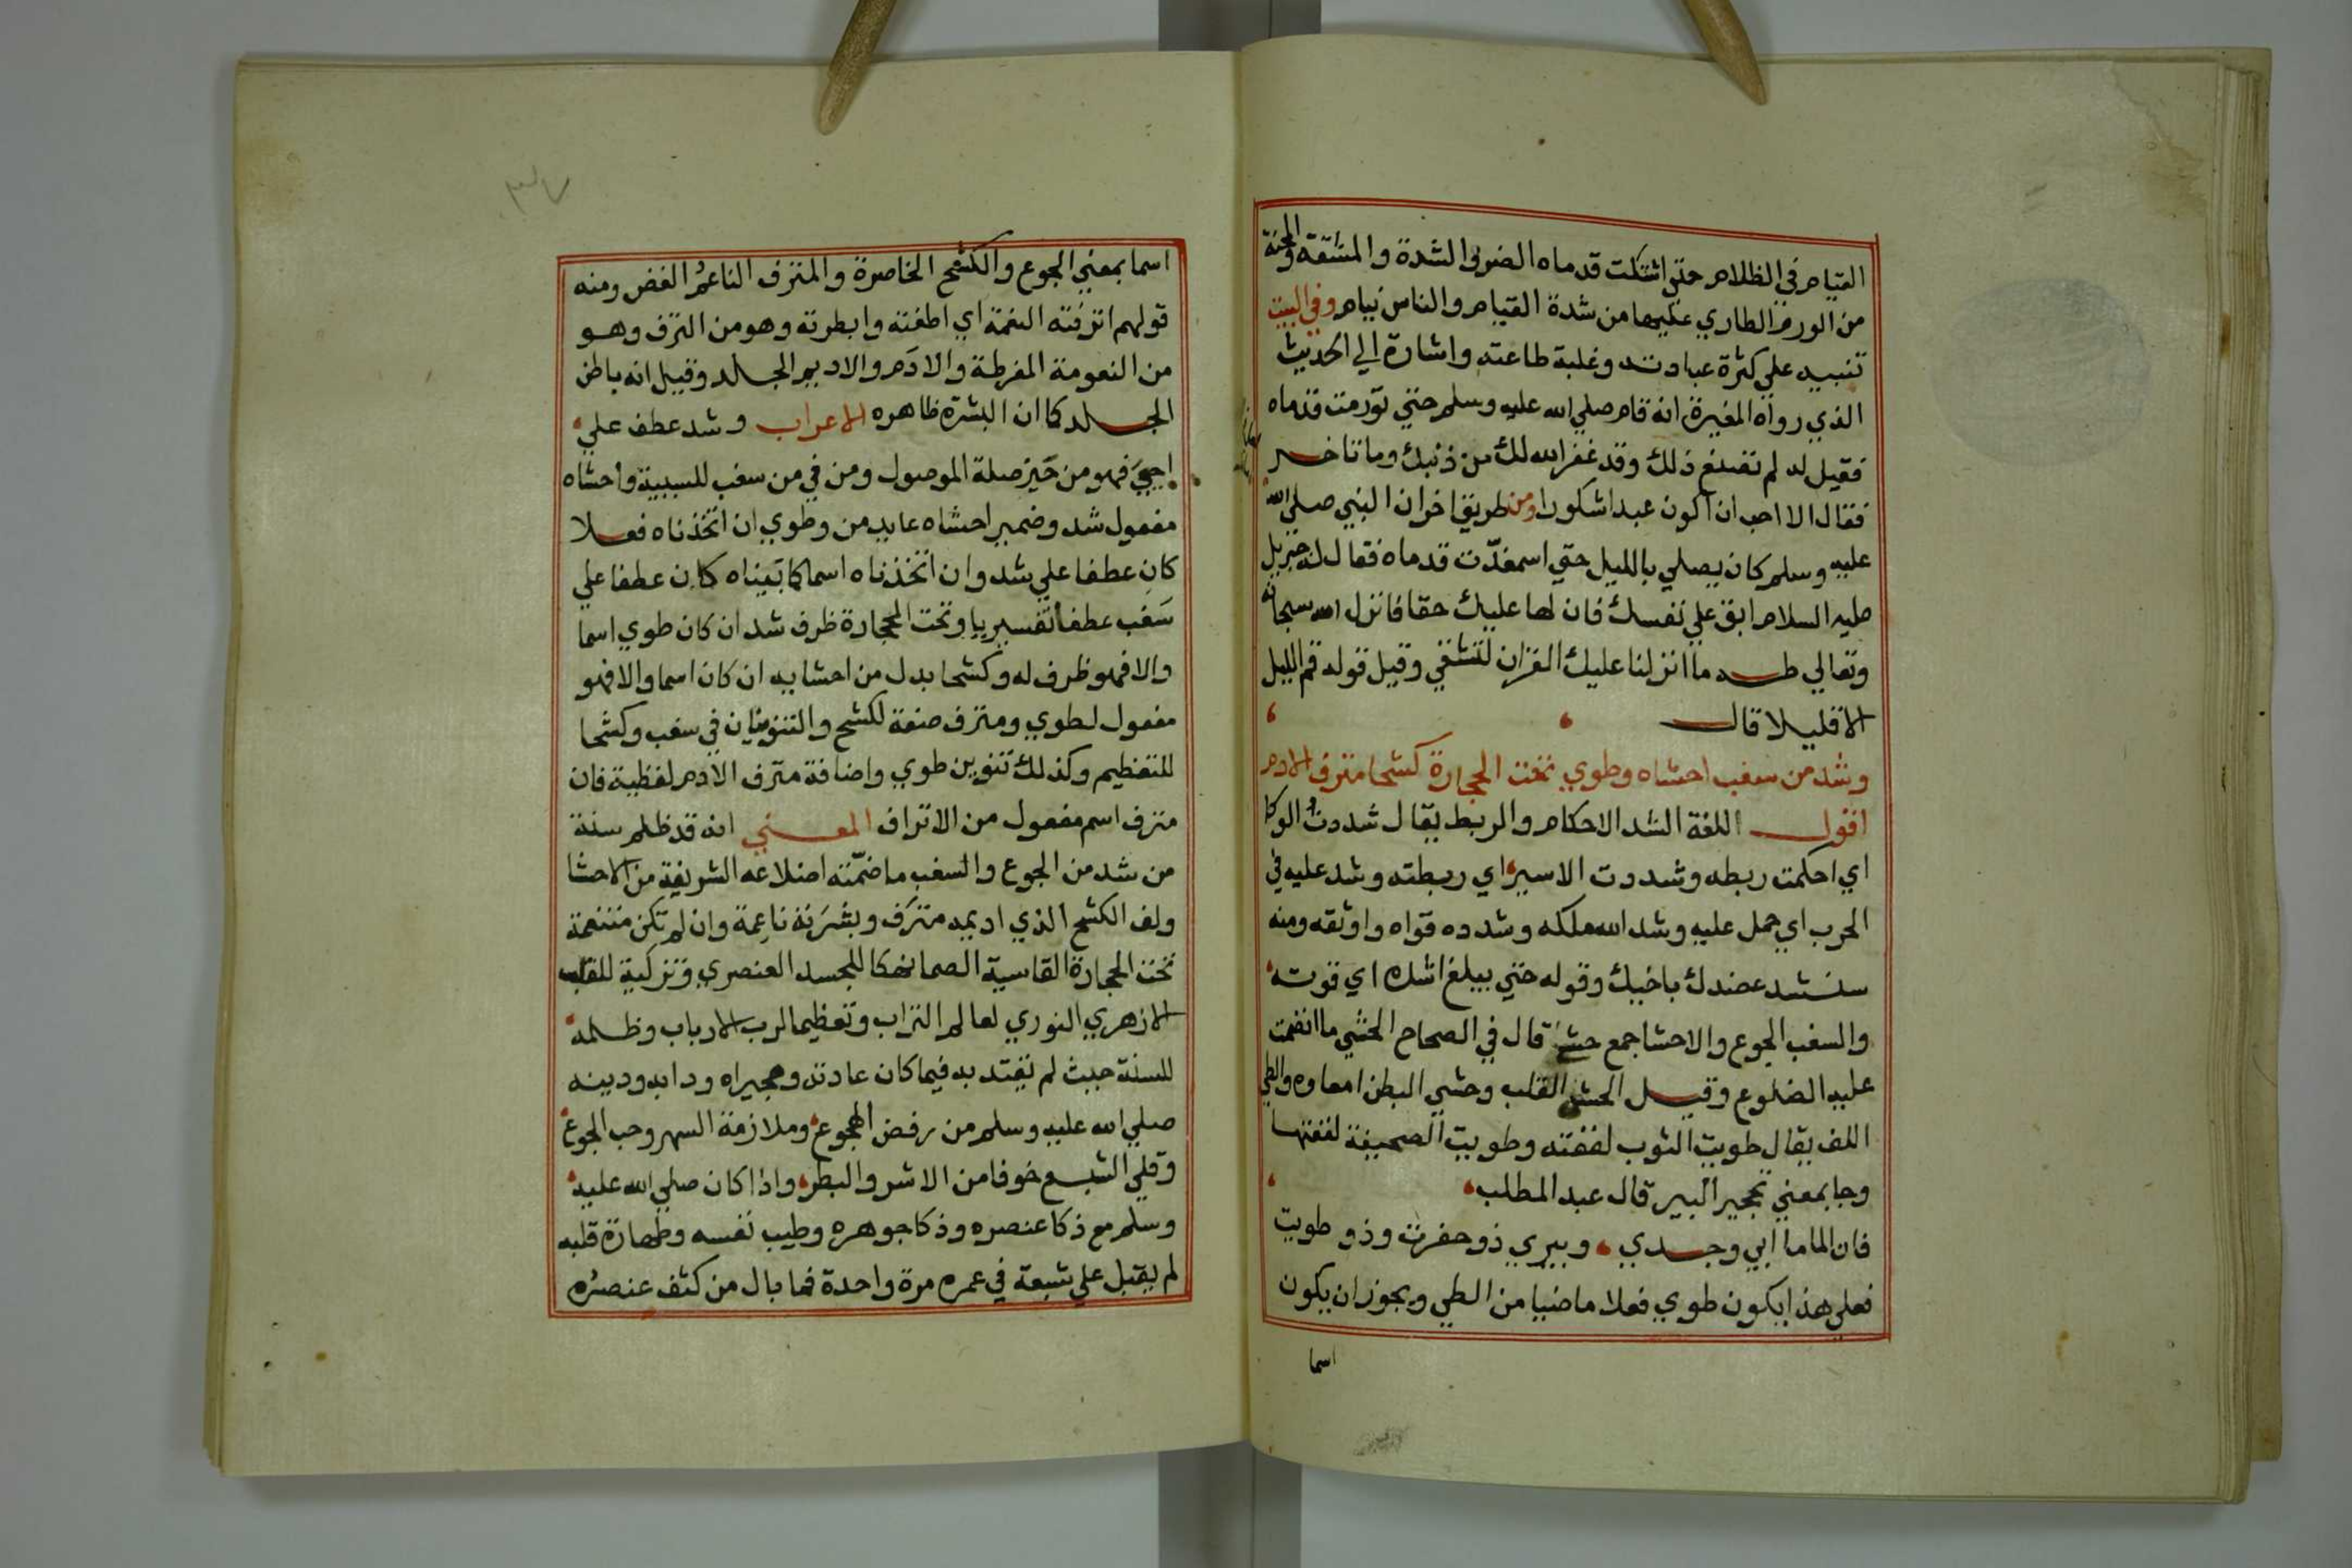 القيام في الظلام حتي اشتكت قدماه الضر في الشدة والمشقة والمحنة
من الورم الطاري عليهما من شدة القيام والناس نيام وفي البيت
تنبيه علي كثرة عبادته وغلبة طاعته واشارة الي الحديث
الذي رواه المغيرة انه قام صلي الله عليه وسلم حتي تورمت قدماه
فقيل له لم تصنع ذلك وقد غفر الله لك من ذنبك وما تاخر
فقال الا احب ان اكون عبدا شكورا ومن طريق اخر ان النبي صلي الله
عليه وسلم كان يصلي بالليل حتي اسمغدّت قدماه فقال له جبريل
عليه السلام ابق علي نفسك فان لها عليك حقا فانزل الله سبحانه
وتعالي طه ما انزلنا عليك القران لتشقي وقيل قوله قم الليل
الا قليلا قال
وشد من سغب احشاه وطوي تحت الحجارة كشحا مترف الادم
اقول اللغة الشد الاحكام والربط يقال شددت الوكا
اي احكمت ربطه وشددت الاسير اي ربطته وشد عليه في
الحرب اي حمل عليه وشد الله ملكه وشدده قواه واوثقه ومنه
سنشد عضدك باخيك وقوله حتي يبلغ اشده اي قوته
والسغب الجوع والاحشا جمع حشي قال في الصحاح الحشي ما انضمت
عليه الضلوع وقيل الحشي القلب وحشي البطن امعاوه والطي
اللف يقال طويت الثوب لففته وطويت الصحيفة لففتها
وجا بمعني تحجير البير قال عبد المطلب
فان الما ما ابي وجدي وبيري ذو حفرت وذو طويت
فعلي هذا يكون طوي فعلا ماضيا من الطي ويجوز ان يكون
اسما
٣٧
اسما بمعني الجوع والكشح الخاصرة والمترف الناعم الغض ومنه
قولهم اترفته النعمة اي اطغته وابطرته وهو من الترف وهو
من النعومة المفرطة والادَم والاديم الجلد وقيل انه باطن
الجلد كما ان البشرة ظاهره الاعراب وشد عطف علي
احيي فهو من حَيز صلة الموصول ومن في من سغب للسببية واحشاه
مفعول شد وضمير احشاه عايد من وطوي ان اتخذناه فعلا
كان عطفا علي شد وان اتخذناه اسما كما بَيناه كان عطفا علي
سَغب عطفا تفسيريا وتحت الحجارة ظرف شد ان كان طوي اسما
والا فهو ظرف له وكشحا بدل من احشايه ان كان اسما والا فهو
مفعول لطوي ومترف صفة لكشح والتنوينان في سغب وكشحا
للتعظيم وكذلك تنوين طوي واضافة مترف الادم لفظية فان
مترف اسم مفعول من الاتراف المعني انه قد ظلم سنة
من شد من الجوع والسغب ما ضمّنته اضلاعه الشريفة من الاحشا
ولف الكشح الذي اديمه مترَف وبشَرَته ناعِمة وان لم تكن متنعمة
تحت الحجارة القاسية الصما نهكا للجسد العنصري وتزكية للقلب
الازهري النوري لعالم التراب وتعظيما لرب الارباب وظلمه
للسنة حيث لم يقتد به فيما كان عادته وهجيراه ودابه ودينه
صلي الله عليه وسلم من رفض الهجوع وملازمة السهر وحب الجوع
وقلي الشبع خوفا من الاشر والبطر واذا كان صلي الله عليه
وسلم مع ذكا عنصره وذكا جوهره وطيب نفسه وطهارة قلبه
لم يقبل علي شبعة في عمره مرة واحدة فما بال من كثف عنصرُه